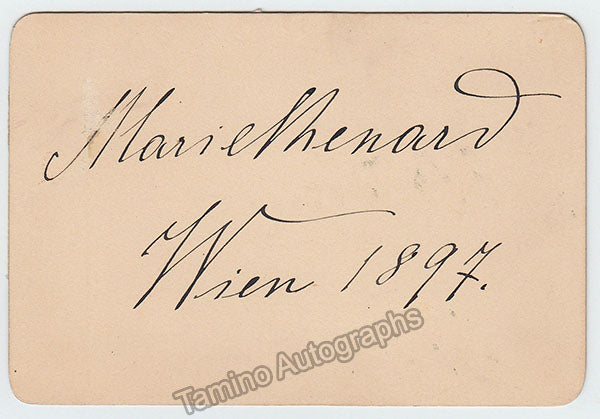 Marie Renard
Wien 1897.
Tamino Autographs